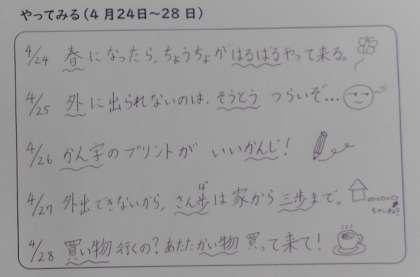 やってみる(4月24日～28日)
4/24 春になったら、ちょうちょがはるばるやって来る。
4/25 外に出られないのは、そうとうつらいぞ…
4/26 かん字のプリントがいいかんじ!
4/27 外出できないから、さん歩は家から三歩まで。
ぽ
4/28 買い物行くの?あたたかい物買って来て!